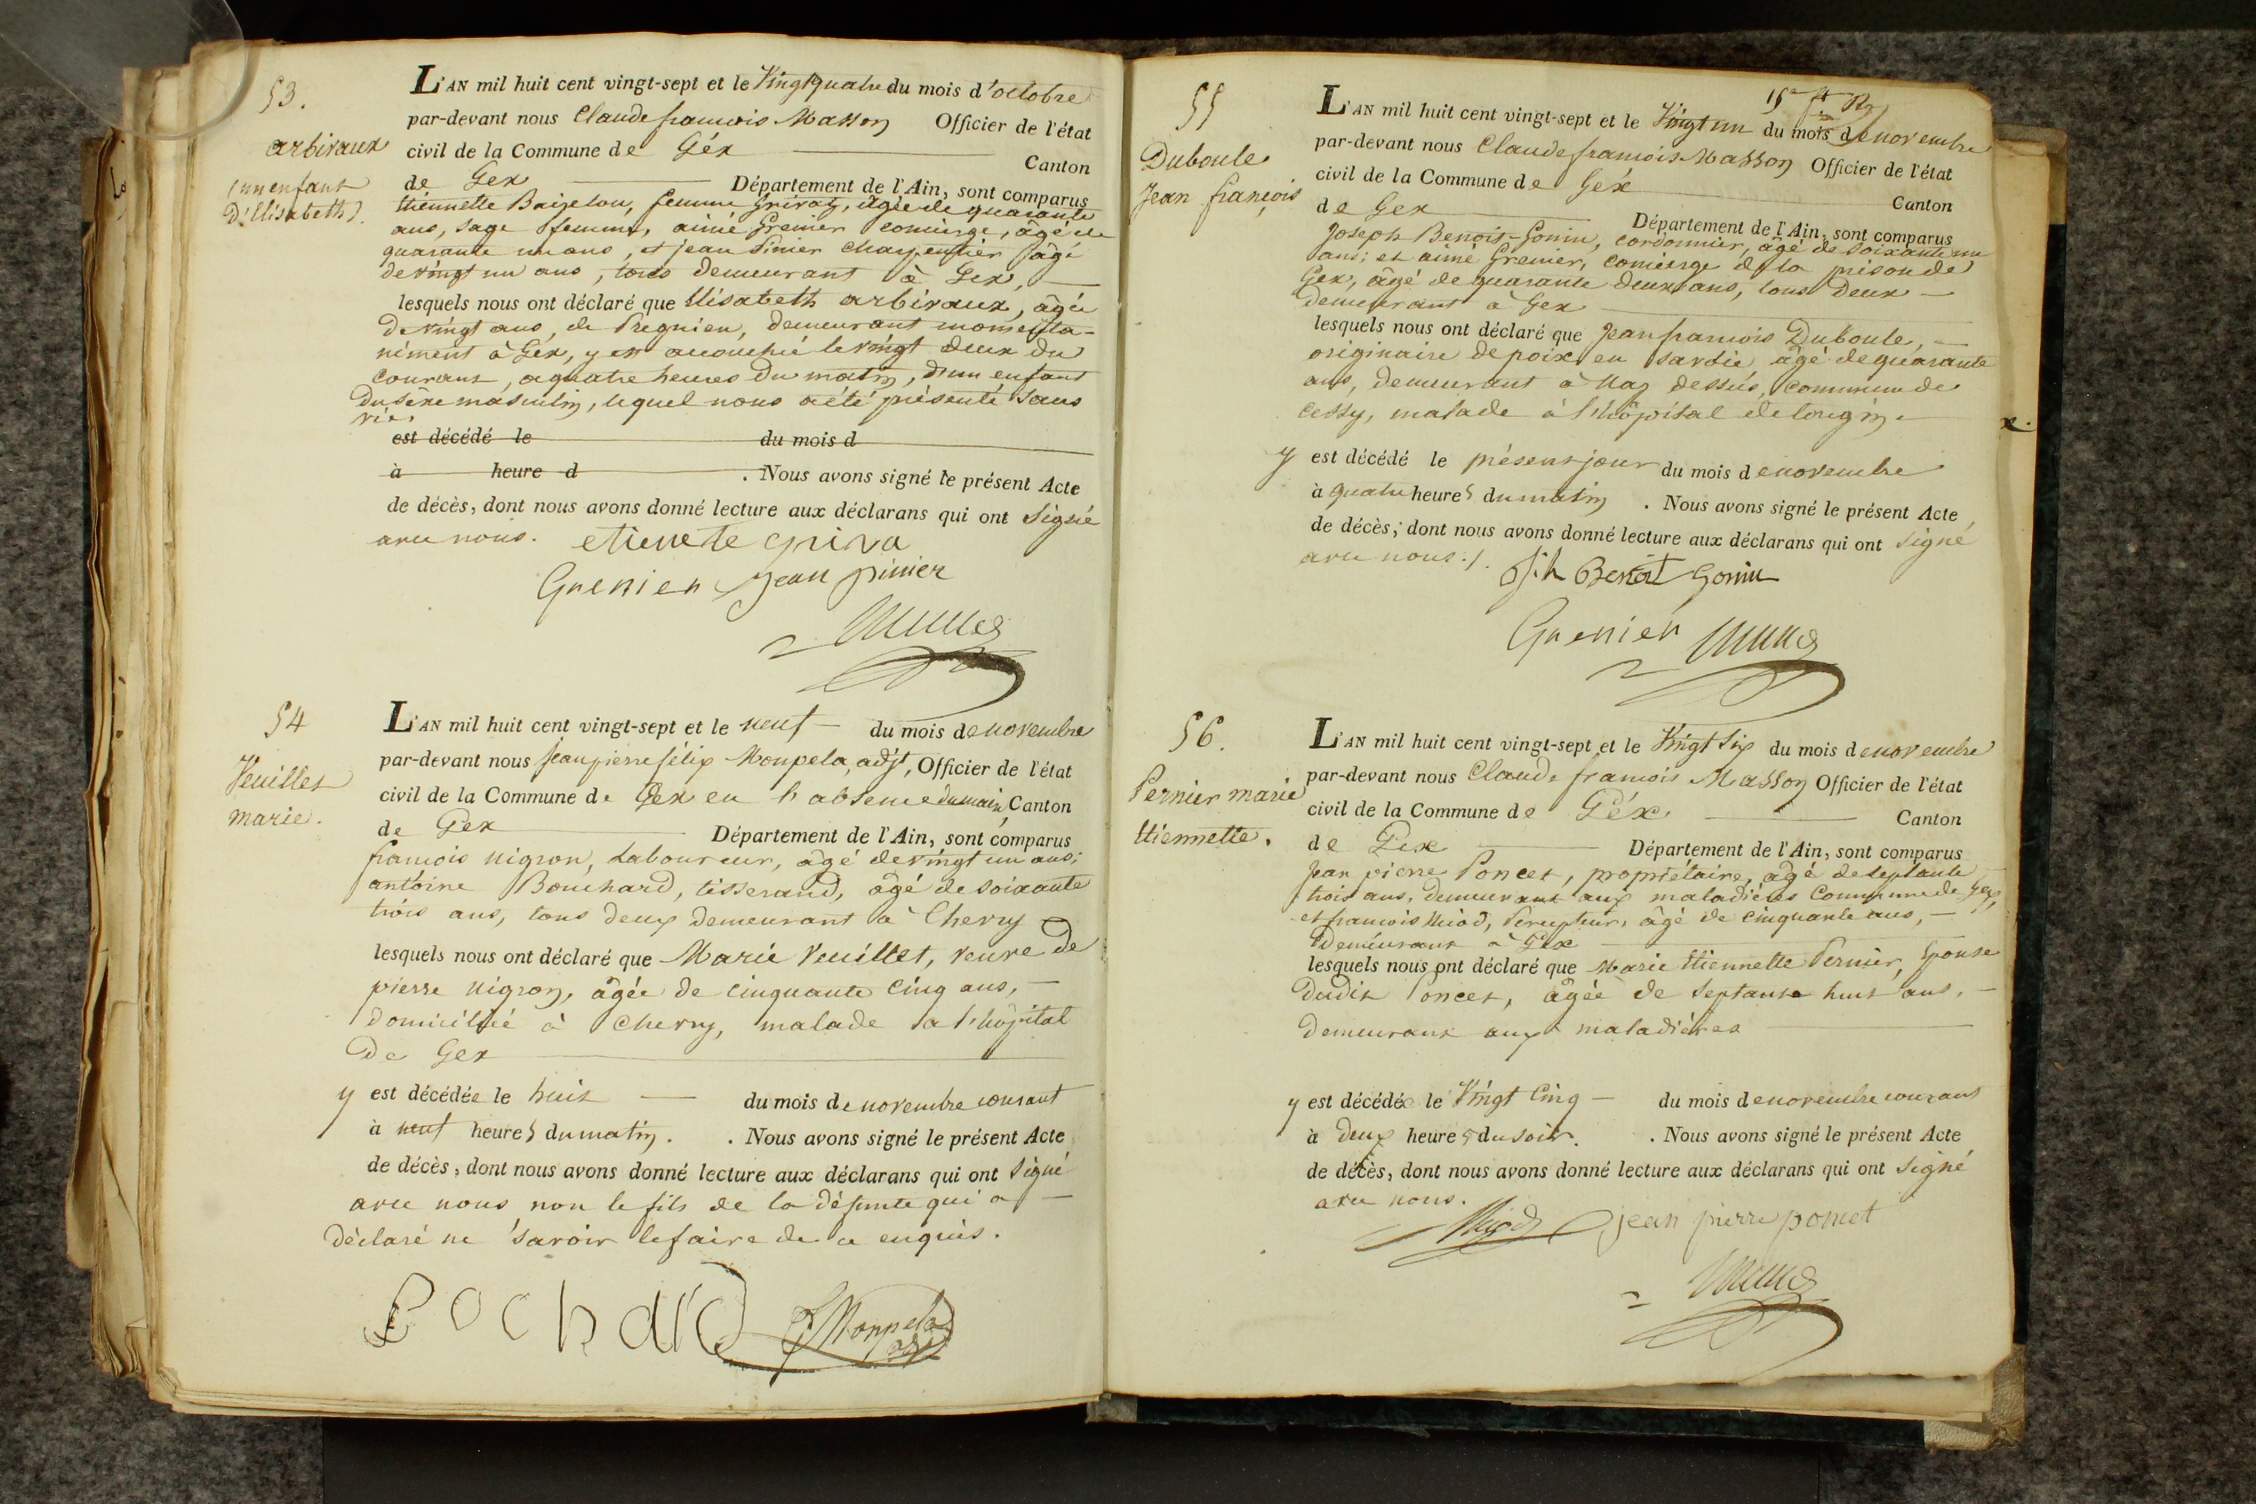 53.
arbiraux
(un enfant
d'Elisabeth).
L'AN mil huit cent vingt-sept et le Vingt quatre du mois d'octobre
par-devant nous Claude francois Masson Officier de l'état
civil de la Commune de Géx Canton
de Gex Département de l'Ain, sont comparus
Etiennette femme Grivaz, âgée de quarante
ans, sage femme, aimé Grenier concierge, âgé de
quarante un ans, et jean Pinier charpentier âgé
de vingt un ans, tous demeurant à Gex,
lesquels nous ont déclaré que Elisabeth arbiraux, âgée
de vingt ans, de Pregnien, demeurant momenta-
nément à Géx, y est accouchée le vingt deux du
courant, a quatre heures du matin, d'un enfant
du sexe masculin, lequel nous a été présenté sans
vie.
est décédé le du mois d
à heure d . Nous avons signé le présent Acte
de décès, dont nous avons donné lecture aux déclarans qui ont Signé
avec nous. etienete griva
Grenier jean pinier
54
Veuillet
marie.
L'AN mil huit cent vingt-sept et le neuf du mois de novembre
par-devant nous Jean pierre félix Monpela, adjt, Officier de l'état
civil de la Commune de Gex en l'absence du maire, Canton
de Gex Département de l'Ain, sont comparus
francois Nigron, Laboureur, âgé de vingt un ans;
antoine Bouchard, tisserand, âgé de soixante
trois ans, tous deux demeurant à Chevry
lesquels nous ont déclaré que Marie Veuillet, veuve de
pierre Nigron, âgée de cinquante cinq ans,
domiciliée à Chevry, malade a l'hôpital
de Gex
y est décédée le huit du mois de novembre courant
à neuf heures du matin. . Nous avons signé le présent Acte
de décès, dont nous avons donné lecture aux déclarans qui ont signé
avec nous non le fils de la défunte qui a
déclaré ne savoir le faire de ce enquis.
Bochard Monpela
adjt
55
Duboule
Jean françois
L'AN mil huit cent vingt-sept et le Vingt un du mois de novembre
par-devant nous Claude francois Masson Officier de l'état
civil de la Commune de Géx Canton
de Gex Département de l'Ain, sont comparus
Joseph Benoit-Gonin, cordonnier, âgé de soixante un
ans; et aimé Grenier, concierge de la prison de
Gex, âgé de quarante deux ans, tous deux
demeurant à Gex
lesquels nous ont déclaré que Jean francois Duboule,
originaire de poix en savoie, âgé de quarante
ans, demeurant à Naz dessus, commune de
Cessy, malade à l'hôpital de tougin.
y est décédé le présent jour du mois de novembre
à quatre heures du matin . Nous avons signé le présent Acte
de décès, dont nous avons donné lecture aux déclarans qui ont signé
avec nous./. Jsh Benoit Gonin
Grenier
56.
Pernier marie
Etiennette.
L'AN mil huit cent vingt-sept et le Vingt six du mois de novembre
par-devant nous Claude francois Masson Officier de l'état
civil de la Commune de Géx. Canton
de Gex Département de l'Ain, sont comparus
Jean pierre Poncet, propriétaire, âgé de septante
trois ans, demeurant aux maladières Commune de Gex,
et francois Niod, Percepteur, âgé de cinquante ans,
demeurant à Gex
lesquels nous ont déclaré que Marie Etiennette Pernier, Epouse
dudit Poncet, âgée de septante huit ans,
demeurant aux maladières
y est décédée le Vingt cinq du mois de novembre courant
à deux heures du soir. . Nous avons signé le présent Acte
de décès, dont nous avons donné lecture aux déclarans qui ont signé
avec nous.
Niod jean pierre poncet